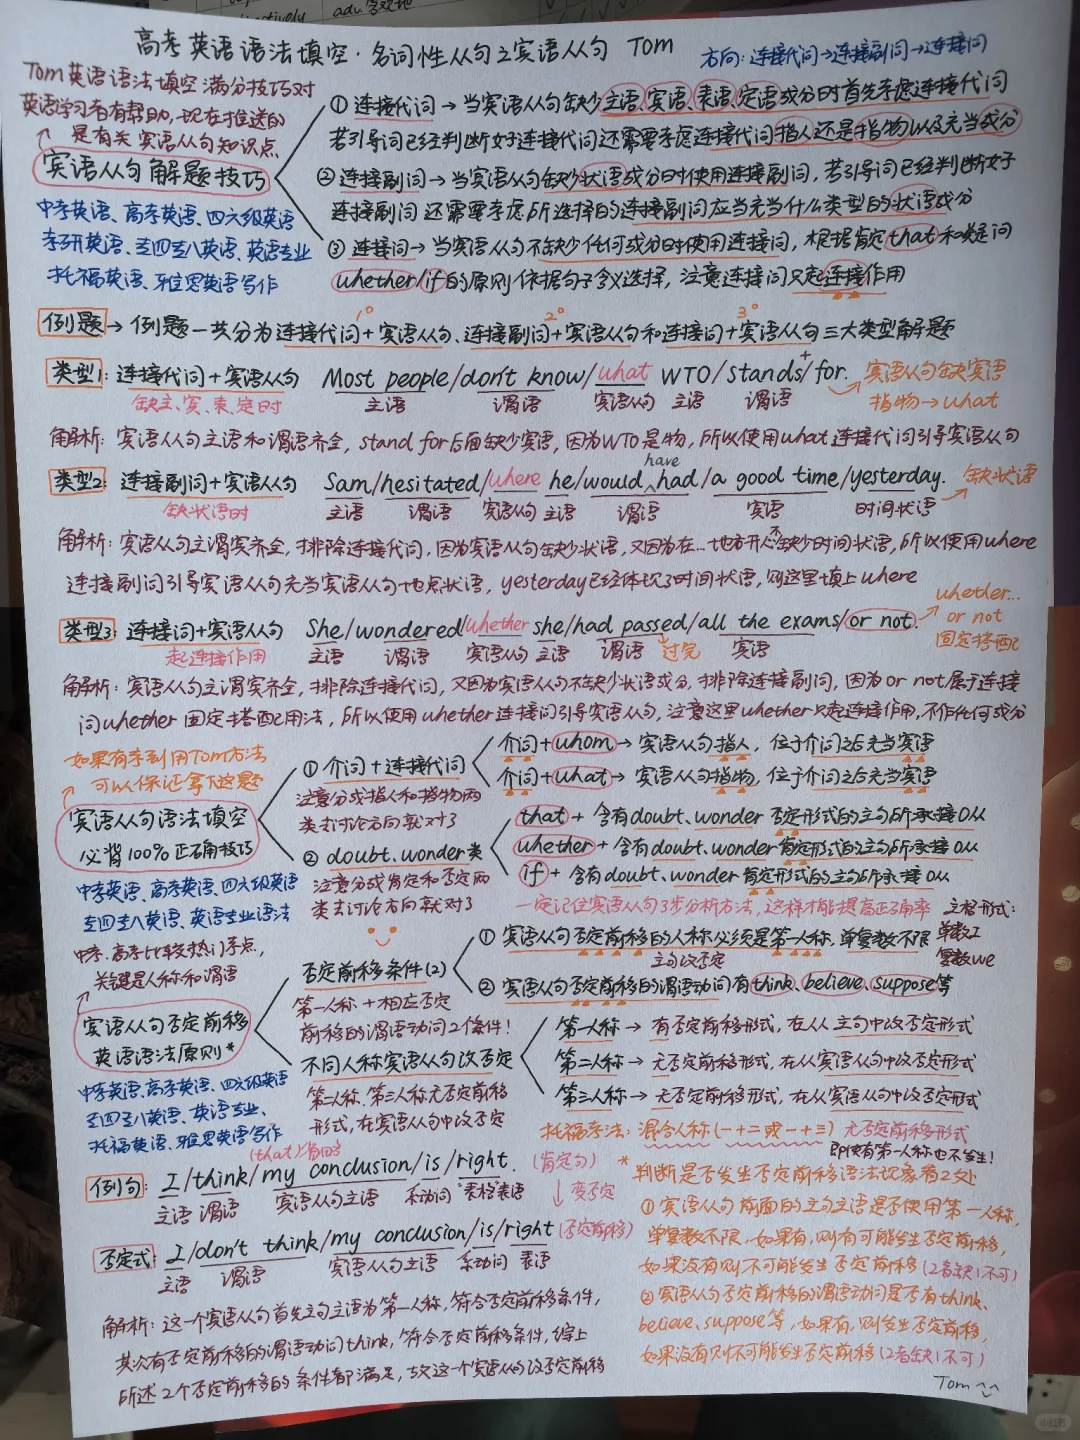 adv. 客观地
高考英语语法填空·名词性从句之宾语从句 Tom
方向:连接代词→连接副词→连接词
Tom英语语法填空满分技巧对
英语学习者有帮助,现在推送的
是有关宾语从句知识点
宾语从句解题技巧
中考英语、高考英语、四六级英语
考研英语、专四专八英语、英语专业
托福英语、雅思英语写作
① 连接代词→当宾语从句缺少主语、宾语、表语、定语成分时首先考虑连接代词
若引导词已经判断好连接代词还需要考虑连接代词指人还是指物以及充当成分
② 连接副词→当宾语从句缺少状语成分时使用连接副词,若引导词已经判断好
连接副词还需要考虑所选择的连接副词应当充当什么类型的状语成分
③ 连接词→当宾语从句不缺少任何成分时使用连接词,根据肯定that和疑问
whether/if的原则依据句子含义选择,注意连接词只起连接作用
1° 2° 3°
例题→例题一共分为连接代词+宾语从句、连接副词+宾语从句和连接词+宾语从句三大类型解题
类型1:连接代词+宾语从句 Most people/don't know/what WTO/stands/for.
缺主、宾、表、定时 主语 谓语 宾语从句 主语 谓语
宾语从句缺宾语
指物→what
解析:宾语从句主语和谓语齐全,stand for后面缺少宾语,因为WTO是物,所以使用what连接代词引导宾语从句
类型2:连接副词+宾语从句 Sam/hesitated/where he/would have had/a good time/yesterday. 缺状语
缺状语时 主语 谓语 宾语从句 主语 谓语 宾语 时间状语
解析:宾语从句主谓宾齐全,排除连接代词,因为宾语从句缺少状语,又因为在…地方开心不缺少时间状语,所以使用where
连接副词引导宾语从句充当宾语从句地点状语,yesterday已经体现了时间状语,则这里填上where
类型3:连接词+宾语从句 She/wondered/whether she/had passed/all the exams/or not.
起连接作用 主语 谓语 宾语从句 主语 谓语 过完 宾语
whether…
or not
固定搭配
解析:宾语从句主谓宾齐全,排除连接代词,又因为宾语从句不缺少状语成分,排除连接副词,因为or not属于连接
词whether固定搭配用法,所以使用whether连接词引导宾语从句,注意这里whether只起连接作用,不作任何成分
如果有考到用Tom方法
可以保证拿下这题
宾语从句语法填空
必背100%正确技巧
中考英语、高考英语、四六级英语
专四专八英语、英语专业语法
① 介词+连接代词
注意分成指人和指物两
类去讨论方向就对了
介词+whom→宾语从句指人,位于介词之后充当宾语
介词+what→宾语从句指物,位于介词之后充当宾语
② doubt、wonder类
注意分成肯定和否定两
类去讨论方向就对了
that+含有doubt、wonder否定形式的主句所承接O从
whether+含有doubt、wonder肯定形式的主句所承接O从
if+含有doubt、wonder肯定形式的主句所承接O从
一定记住宾语从句3步分析方法,这样才能提高正确率
主格形式:
单数I
复数we
中考、高考比较热门考点,
关键是人称和谓语
宾语从句否定前移
英语语法原则*
中考英语、高考英语、四六级英语
专四专八英语、英语专业、
托福英语、雅思英语写作
否定前移条件(2)
第一人称+相应否定
前移的谓语动词2个条件!
① 宾语从句否定前移的人称必须是第一人称,单复数不限
主句改否定
② 宾语从句否定前移的谓语动词有think、believe、suppose等
不同人称宾语从句改否定
第二人称、第三人称无否定前移
形式,在宾语从句中改否定
第一人称→有否定前移形式,在从主句中改否定形式
第二人称→无否定前移形式,在从宾语从句中改否定形式
第三人称→无否定前移形式,在从宾语从句中改否定形式
托福考法:混合人称(一+二或一+三)无否定前移形式
即使有第一人称也不发生!
(that)省略
例句:I/think/my conclusion/is/right. (肯定句)
主语 谓语 宾语从句主语 系动词 表格表语 ↓变否定
否定式:I/don't think/my conclusion/is/right (否定前移)
主语 谓语 宾语从句主语 系动词 表语
解析:这一个宾语从句首先主句主语为第一人称,符合否定前移条件,
其次有否定前移的谓语动词think,符合否定前移条件,综上
所述2个否定前移的条件都满足,故这个宾语从句改否定前移
*判断是否发生否定前移语法现象看2处
① 宾语从句前面的主句主语是否使用第一人称,
单复数不限,如果有,则有可能发生否定前移,
如果没有则不可能发生否定前移(2者缺1不可)
② 宾语从句否定前移的谓语动词是否有think、
believe、suppose等,如果有,则发生否定前移,
如果没有则不可能发生否定前移(2者缺1不可)
Tom
小红书